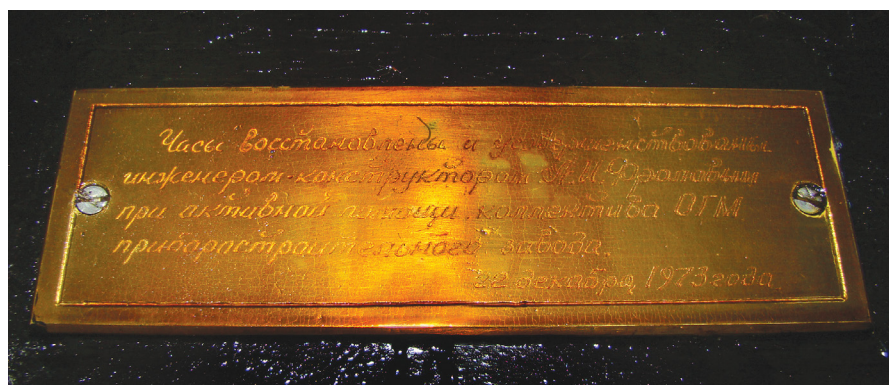 Часы восстановлены и усовершенствованы
инженером-конструктором
при активной помощи коллектива ОГМ
приборостроительного завода.
22 декабря 1973 года.